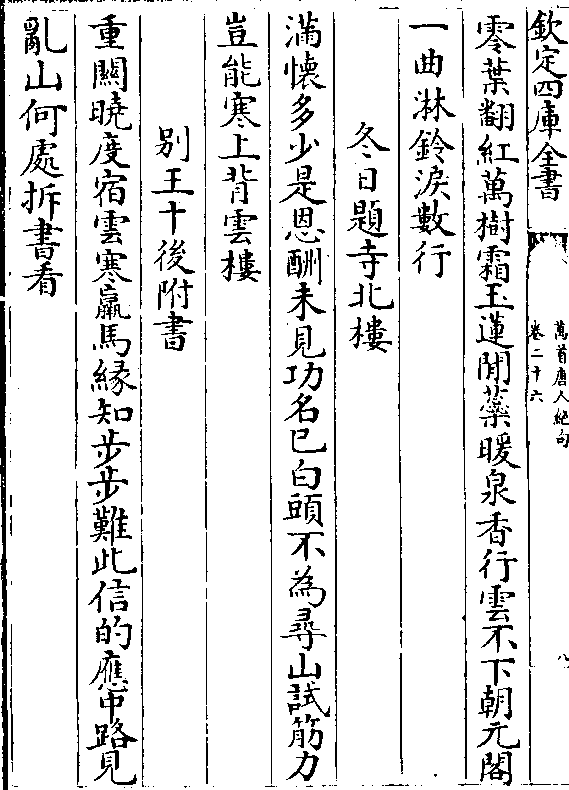 欽定四庫全書
萬首唐人絶句
卷二十六
八
零葉翻紅萬樹霜玉蓮開蘂暖泉香行雲不下朝元閣
一曲淋鈴淚數行
冬日題寺北樓
滿懷多少是恩酬未見功名已白頭不為尋山試筋力
豈能寒上背雲樓
别王十後附書
重關曉度宿雲寒羸馬縁知步步難此信的應中路見
亂山何處拆書看